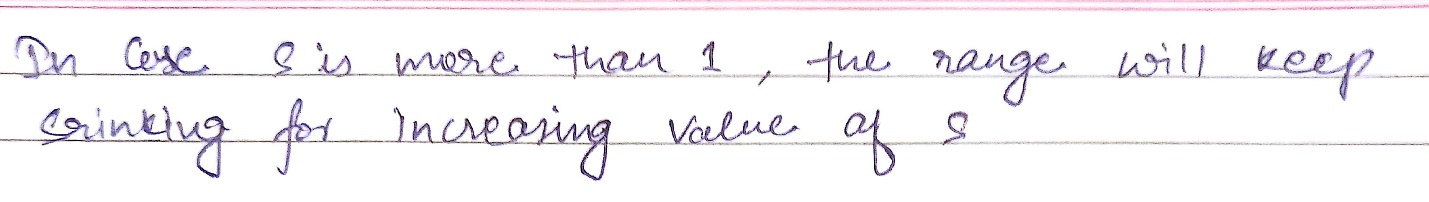 In Case s is more than 1, the range will keep
srinking for increasing value of s